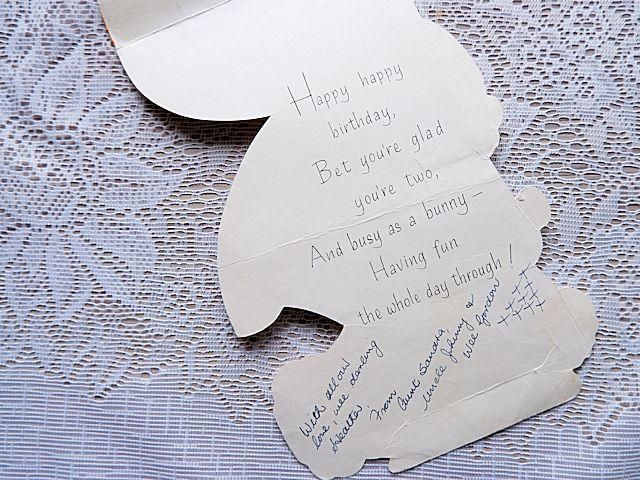 Happy happy
birthday,
Bet you're glad
you're two,
And busy as a bunny—
Having fun
the whole day through!
With all our
love, wee darling
Heather
From
Aunt Sandra
Uncle Johnny &
Wee Gordon
++++
++++